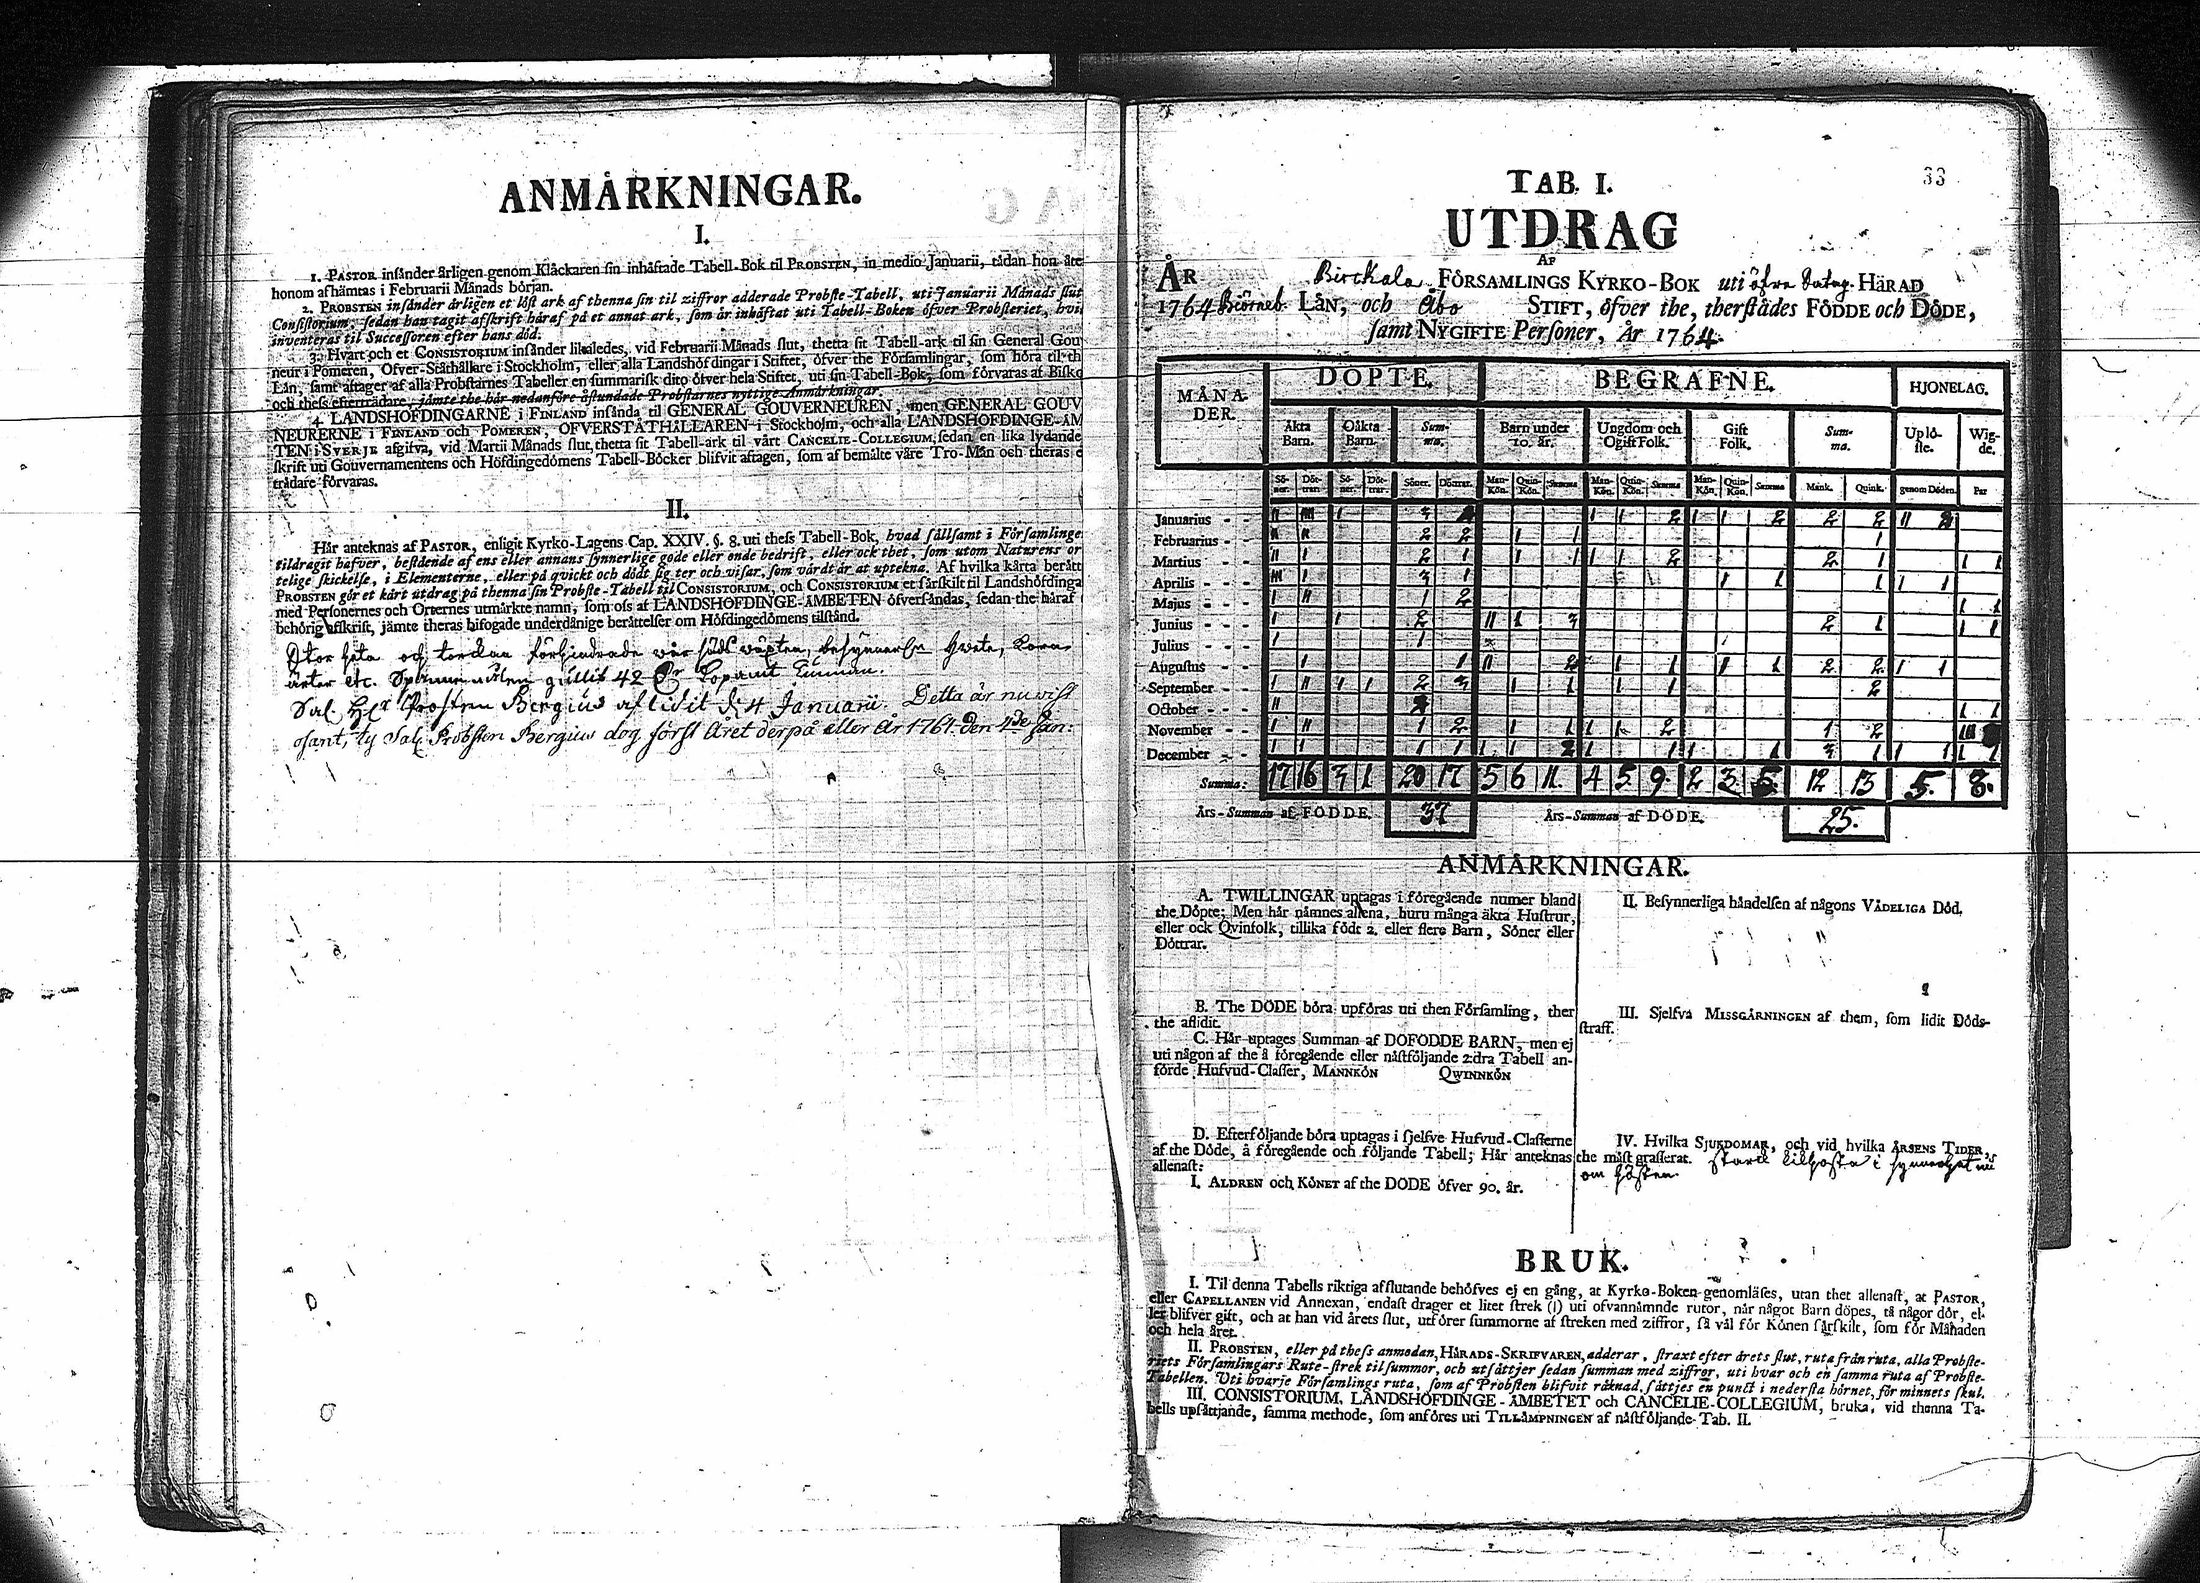 ANMÅRKNINGAR.
I.
1. PASTOR insånder årligen genom Klåckaren sin inhåftade Tabell-Bok til PROBSTEN, in medio Januarii, tådan hon åte
honom afhåmtas i Februarii Månads början.
2. PROBSTEN insånder årligen et löst ark af thenna sin til ziffror adderade Probste-Tabell, uti Januarii Månads slut
Consistorium, sedan han tagit afskrift håraf på et annat ark, som år inhåftat uti Tabell-Boken öfver Probsteriet, hvi
inventeras til Successoren efter hans död.
3. Hvart och et CONSISTORIUM insånder likaledes, vid Februarii Månads slut, thetta sit Tabell-ark til sin General Gou
neur i Pomeren, Öfver-Ståthållare i Stockholm, eller alla Landshöfdingar i Stiftet, öfver the Församlingar, som höra til th
Lån, samt aftager af alla Probstarnes Tabeller en summarisk dito öfver hela Stiftet, uti sin Tabell-Bok, som förvaras af Bisko
och thess eftertrådare, jåmte the hår nedanföre åstundade Probstarnes nyttige Anmårkningar.
4. LANDSHÖFDINGARNE i FINLAND insånda til GENERAL GOUVERNEUREN, men GENERAL GOUV
NEURERNE i FINLAND och POMEREN, ÖFVERSTÅTHÅLLAREN i Stockholm, och alla LANDSHÖFDINGE-ÅM
TEN i SVERJE afgifva, vid Martii Månads slut, thetta sit Tabell-ark til vårt CANCELIE-COLLEGIUM, sedan en lika lydande
skrift uti Gouvernamentens och Höfdingedömens Tabell-Böcker blifvit aftagen, som af bemålte våre Tro-Mån och theras e
trådare förvaras.
II.
Hår anteknas af PASTOR, enligit Kyrko-Lagens Cap. XXIV. §. 8. uti thess Tabell-Bok, hvad sållsamt i Församlinge
tildragit hafver, bestående af ens eller annans synnerlige gode eller onde bedrift, eller ock thet, som utom Naturens or
telige skickelse, i Elementerne, eller på qvickt och dödt sig ter och visar, som vårdt år at uptekna. Af hvilka kårta berått
PROBSTEN gör et kårt utdrag på thenna sin Probste-Tabell til CONSISTORIUM, och CONSISTORIUM et sårskilt til Landshöfdinga
med Personernes och Orternes utmårkte namn, som oss af LANDSHÖFDINGE-ÅMBETEN öfversåndas, sedan the håraf
behörig afskrift, jåmte theras bifogade underdånige beråttelser om Höfdingedömens tilstånd.
Stor heta och torckan förhindrade vår såds växten, besynnerlin Hvete, Korn
ärter etc.
Sal. Hr Prosten Bergius aflidit d. 4 Januarii. Detta är nu vist
osant, ty Sal. Probsten Bergius dog först Året derpå eller År 1764 den 4de Jan:
33
TAB. I.
UTDRAG
AF
ÅR Birckala FÖRSAMLINGS KYRKO-BOK uti öfra HÅRAD
1764 Biörneb. LÅN, och Åbo STIFT, öfver the, therstådes FÖDDE och DÖDE,
samt NYGIFTE Personer, År 1764.
MÅNA-
DER.
DÖPTE. BEGRAFNE. HJONELAG.
Åkta
Barn. Oåkta
Barn. Sum-
ma. Barn under
10. år. Ungdom och
Ogift Folk. Gift
Folk. Sum-
ma. Uplö-
ste. Wig-
de.
Sö-
ner. Döt-
trar. Sö-
ner. Döt-
trar. Söner. Döttrar. Man-
Kön. Quin-
Kön. Summa Man-
Kön. Quin-
Kön. Summa Man-
Kön. Quin-
Kön. Summa Mank. Quink. genom Döden. Par
Januarius - - II IIII I 3 4 I I 2 I I 2 2 2 II 2
Februarius - - II II 2 2 I 1 1
Martius - - II I 2 1 I 1 I I 2 2 1 I 1
Aprilis - - III I 3 1 I 1 1 I 1
Majus - - I II 1 2 I 1
Junius - - I I 2 II I 3 2 1 I 1
Julius - - I 1
Augustus - - I 1 II 2 I 1 I 1 2 2 I 1
September - - I II I I 2 3 I 1 I 1 2
October - - II 2 I 1
November - - I II 1 2 I 1 I I 2 1 2 III
December - - I I 1 1 I I 2 I 1 I 1 3 1 I 1 I 1
Summa: 17 16 3 1 20 17 5 6 11. 4 5 9. 2 3 5. 12 13 5. 8.
Års-Summan af FÖDDE. 37 Års-Summan af DÖDE. 25.
ANMÅRKNINGAR.
A. TWILLINGAR uptagas i föregående numer bland
the Döpte; Men hår nåmnes allena, huru många åkta Hustrur,
eller ock Qvinfolk, tillika födt 2. eller flere Barn, Söner eller
Döttrar.
B. The DÖDE böra upföras uti then Församling, ther
the aflidit.
C. Hår uptages Summan af DÖFÖDDE BARN, men ej
uti någon af the å föregående eller nåstföljande 2:dra Tabell an-
förde Hufvud-Classer, MANNKÖN QWINNKÖN
D. Efterföljande böra uptagas i sjelfve Hufvud-Classerne
af the Döde, å föregående och följande Tabell; Hår anteknas
allenast:
I. ÅLDREN och KÖNET af the DÖDE öfver 90. år.
II. Besynnerliga håndelsen af någons VÅDELIGA Död.
III. Sjelfva MISSGÅRNINGEN af them, som lidit Döds-
straff.
IV. Hvilka SJUKDOMAR, och vid hvilka ÅRSENS TIDER,
the måst grasserat. starck kikhosta i synnerhet
om hösten.
BRUK.
I. Til denna Tabells riktiga afslutande behöfves ej en gång, at Kyrko-Boken genomlåses, utan thet allenast, at PASTOR,
eller CAPELLANEN vid Annexan, endast drager et litet strek (|) uti ofvannåmnde rutor, når något Barn döpes, tå någor dör, el-
ler blifver gift, och at han vid årets slut, utförer summorne af streken med ziffror, så vål för Könen sårskilt, som för Månaden
och hela året.
II. PROBSTEN, eller på thess anmodan, HÅRADS-SKRIFVAREN, adderar, straxt efter årets slut, ruta från ruta, alla Probste-
riets Församlingars Rute-strek til summor, och utsåttjer sedan summan med ziffror, uti hvar och en samma ruta af Probste-
Tabellen. Uti hvarje Församlings ruta, som af Probsten blifvit råknad, såttjes en punct i nedersta hörnet, för minnets skul.
III. CONSISTORIUM, LANDSHÖFDINGE-ÅMBETET och CANCELIE-COLLEGIUM, bruka, vid thenna Ta-
bells upsåttjande, samma methode, som anföres uti TILLÅMPNINGEN af nåstföljande Tab. II.